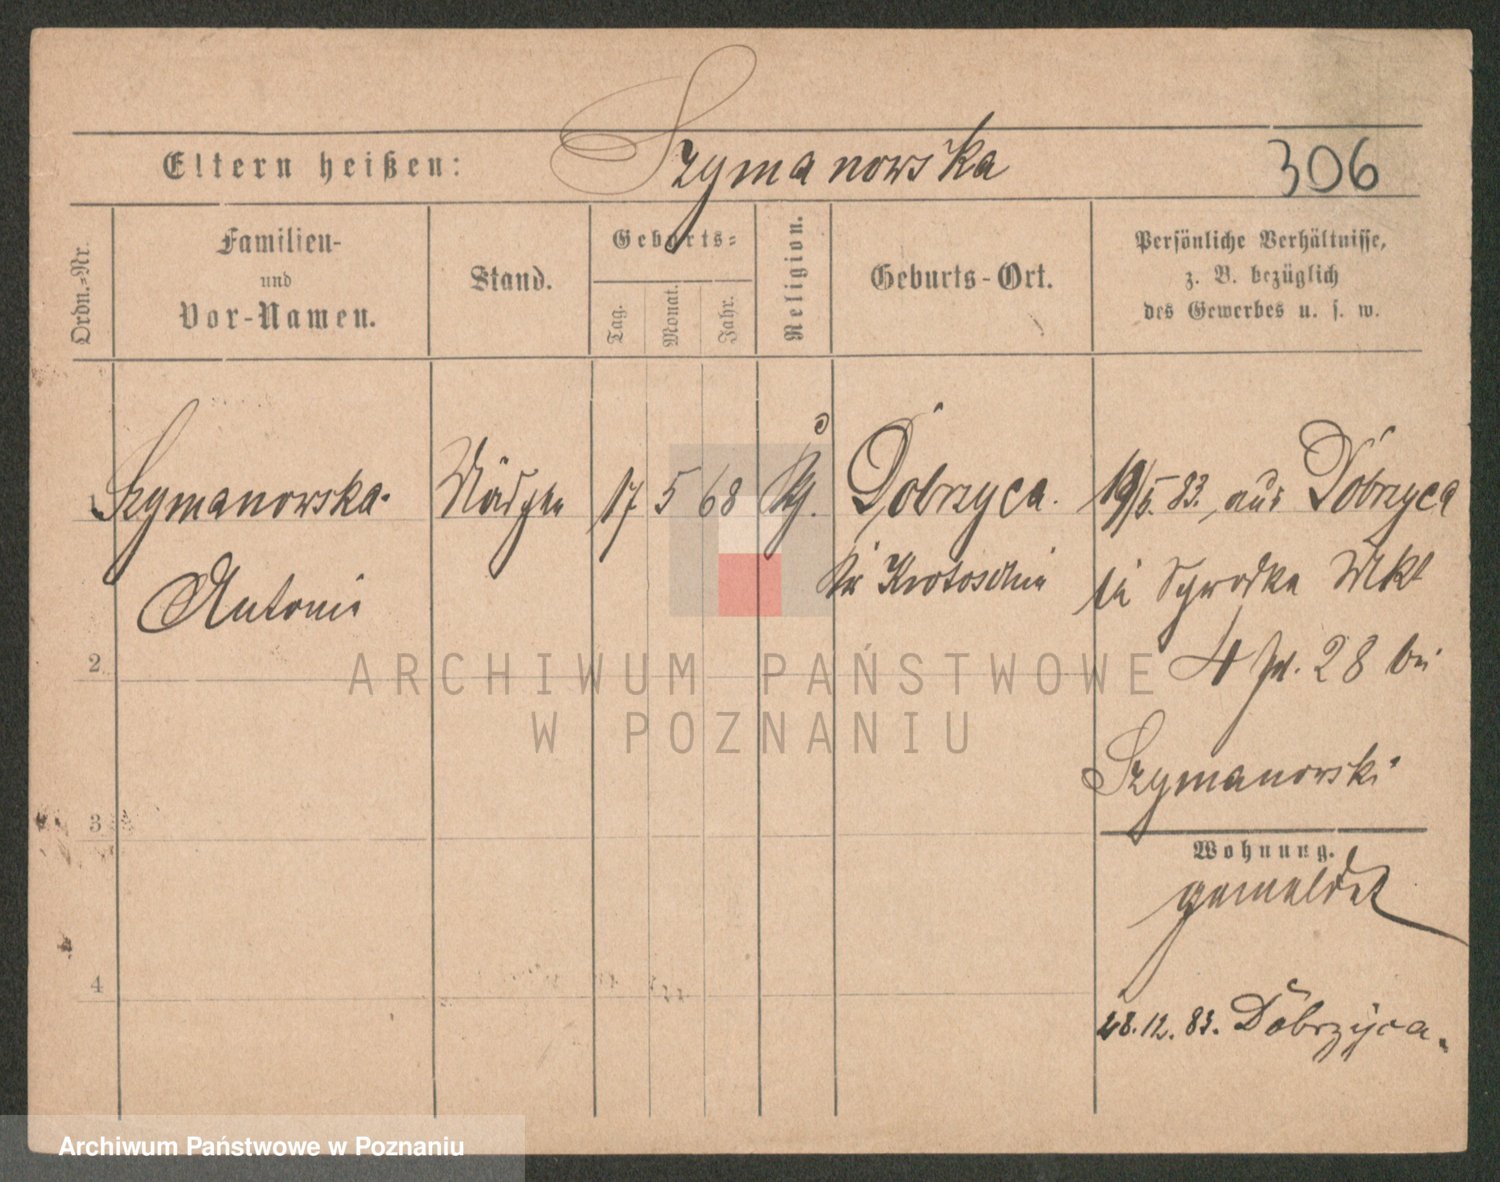 Szymanowska
Eltern heißen:
306
Ordn.=Nr.
Familien-
und
Vor-Namen.
Stand.
Geburts=
Tag.
Monat.
Jahr.
Religion.
Geburts-Ort.
Persönliche Verhältnisse,
z. B. bezüglich
des Gewerbes u. s. w.
Szymanowska
Antonie
17 5 68
Dobrzyca.
Kr Krotoschin
19/5. 83. aus Dobrzyca
Srodka Mkt
4 28 bei
Szymanowski
2
3
4
Wohnung.
gemeldet
28.12.83. Dobrzyca.
ARCHIWUM PAŃSTWOWE
W POZNANIU
Archiwum Państwowe w Poznaniu